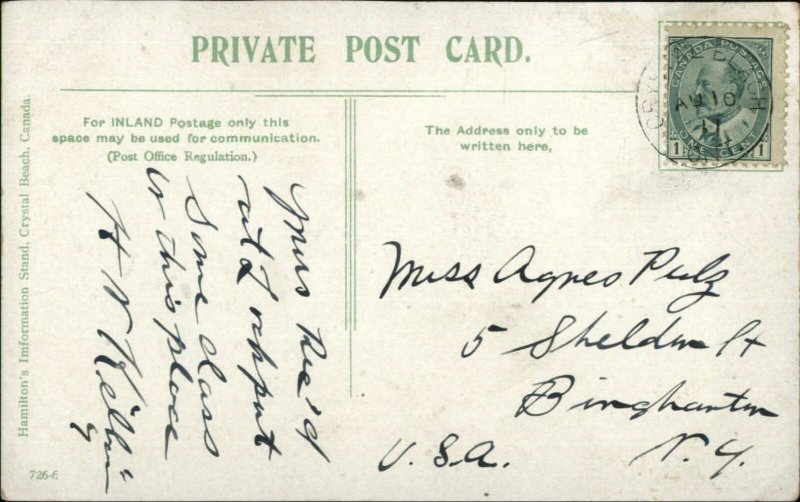 PRIVATE POST CARD.
For INLAND Postage only this
space may be used for communication.
(Post Office Regulation.)
The Address only to be
written here,
CANADA POSTAGE
1 ONE CENT 1
CRYSTAL BEACH
AU 10
ONT
Hamilton's Imformation Stand, Crystal Beach, Canada.
Yours Rec'd
all
Some class
to this place
H W
Miss Agnes Pulz
5 Sheldon St
Binghamton
U.S.A. N.Y.
726-6